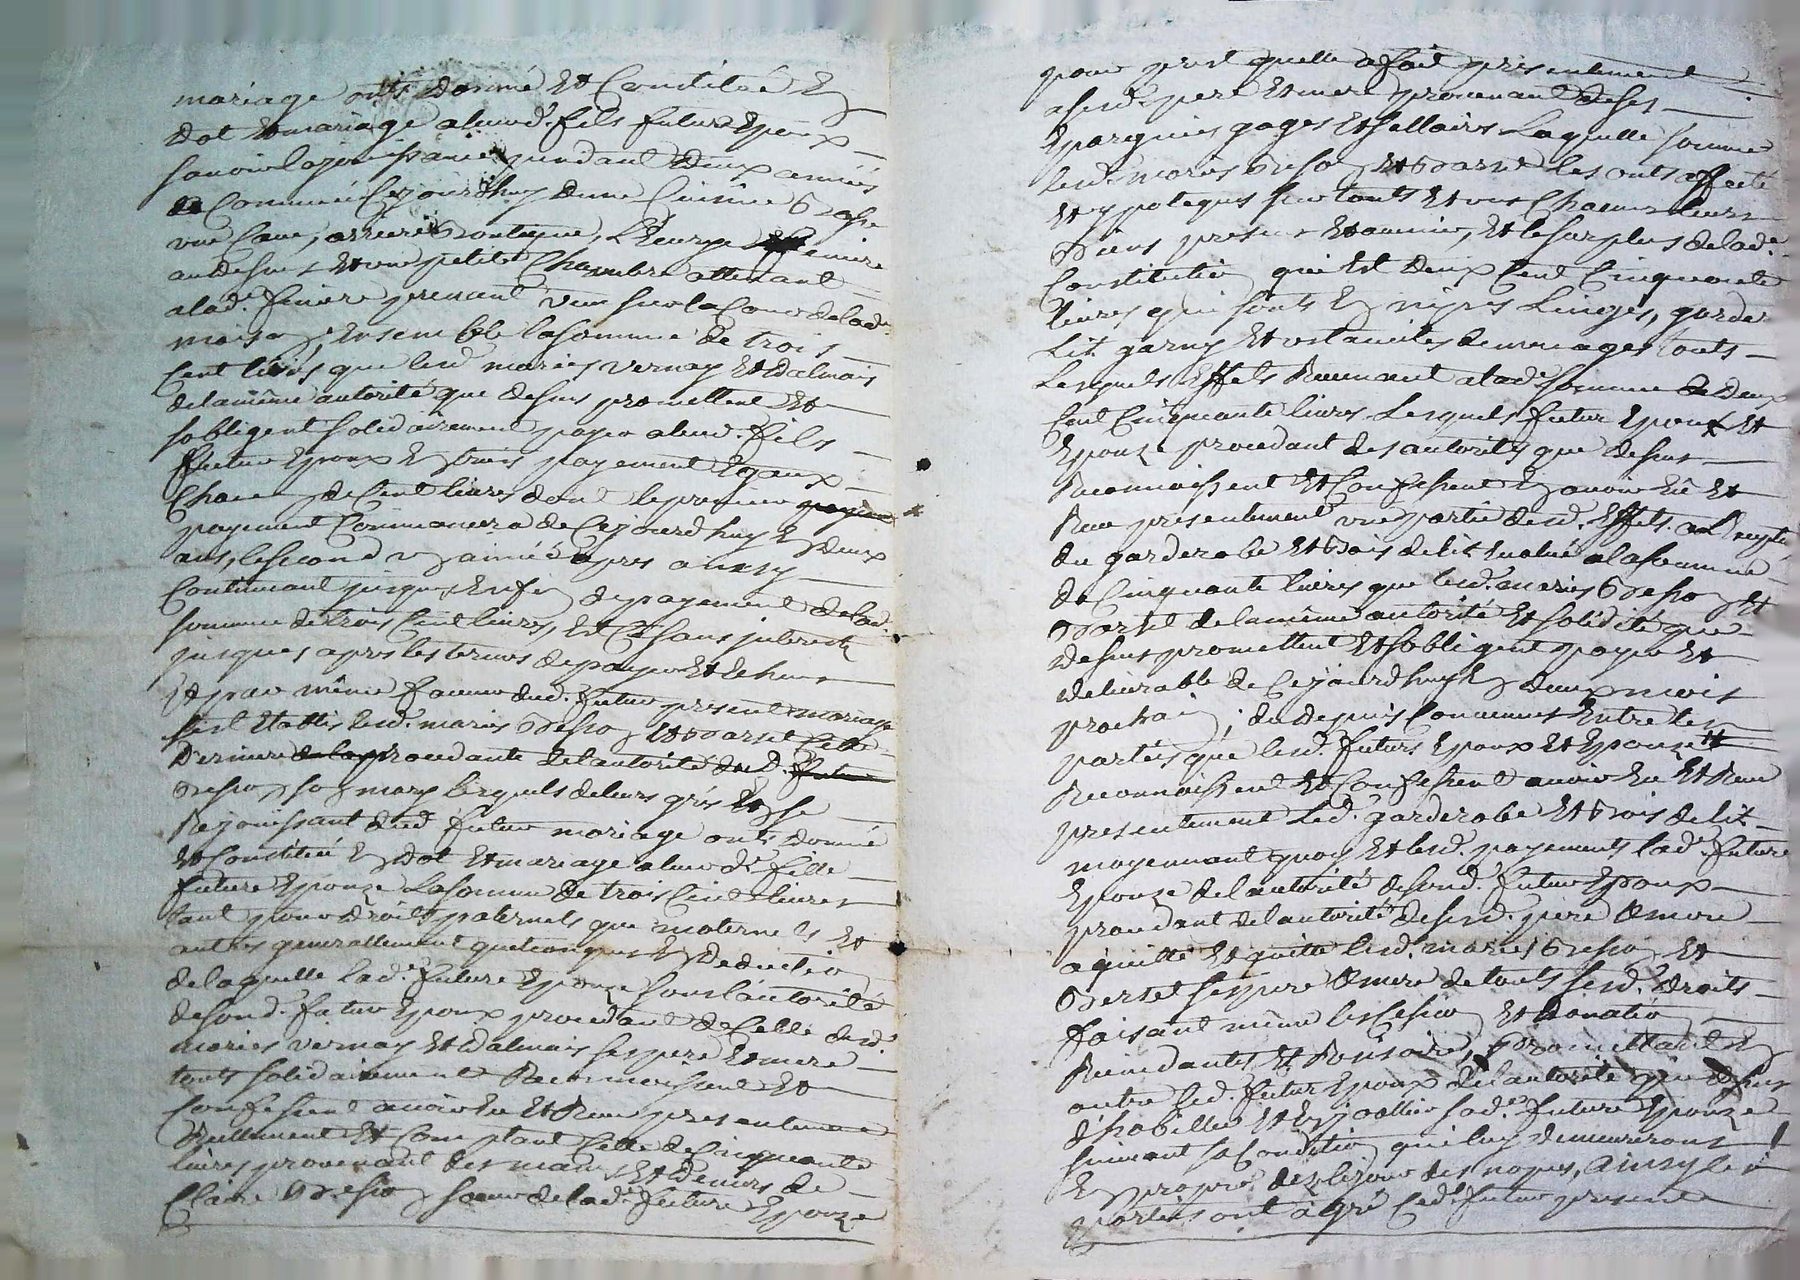 mariage onts donné Et Constitué En
dot Et mariage aleurd. fils futur Epoux
savoir la jouissance pendant deux années
a Commencé Cejourdhuy d'une Cuisine basse
une Cave, arriere boutique, L'Ecurye feniere
audessus Et une petite Chambre attenant
alad.e feniere prenant veue sur la Cour delad.e
maison, Ensemble la somme de trois
Cent livres que lesd. mariés vernay Et dalmais
de la même autorité que dessus promettent Et
sobligent solidairement payer aleurd. fils
futur Epoux En trois payement Egaux
Chacun de Cent livres dont le premier payem
payement Commancera de Cejourdhuy En deux
ans, le second un année apres ainsy
Continuant jusques Enfin de payement delad.
somme de trois Cent livres, Et Ce sans interest
jusques apres les termes de payer Et Echus
Et par même faveur dud. futur present mariage
sest Etablis lesd. mariés Et Cette
derniere de la procedante de l'autorité dud. futur
son mary lesquels de leurs grés Et se
Rejouissant dud. futur mariage onts donné
Et Constitué En dot Et mariage aleurd.e fille
future Epouze La somme de trois Cent livres
tant pour droits paternels que maternels Et
autres generallement quelconques En deduction
de laquelle lad.e future Epouze sous l'autorité
de sond. futur Epoux procedant de Celle desd.
mariés vernay Et dalmais ses pere Et mere
touts solidairement Reconnoissent Et
Confessent avoir Eu Et Receu presentement
Reellement Et Comptant Celle de Cinquante
livres provenant des mains Et deniers de
Claire soeur delad.e future Epouze
pour prest quelle a fait presentement
asesd. pere Et mere provenant de ses
Epargnies gages Et sallaires Laquelle somme
lesd. mariés Et les onts affecté
Et ypotequés sur touts Et uns Chacuns leurs
biens presens Et avenir, Et le surplus delad.e
Constitution qui Est deux Cent Cinquante
livres qui sonts En nipes Linges, garde
Lit garny Et ustancilles de menages touts
Lesquels Effets Revenant alad.e somme de deux
Cent Cinquante livres Lesquels futur Epoux Et
Epouze procedant des autorités que dessus
Reconnoissent Et Confessent En avoir Eu Et
Receu presentement une partie desd. Effets
du garderobe Et bois de lit Evalué a la somme
de Cinquante livres que lesd. mariés Et
de la même autorité Et solidité que
dessus promettent Et sobligent payer Et
delivrable de Cejourdhuy En deux mois
prochain; du depuis Convennus Entre les
parties que lesd. futurs Epoux Et Epouze
Reconnoissent Et Confessent avoir Eu Et Receu
presentement Led. garderobe Et bois de lit
moyennant quoy Et lesd. payements lad.e future
Epouze de l'autorité de sond. futur Epoux
procedant de l'autorité de sesd. pere Et mere
a quitté Et quitte lesd. mariés Et
ses pere Et mere de touts sesd. droits
faisant même les Cession Et donation
promettant En
outre led. futur Epoux de l'autorité que dessus
d'habiller Et Enjoaller sad.e future Epouze
suivant sa Condition qui luy demeureront
En propre dez le jour des nopces, ainsy les
parties ont agré led. futur present